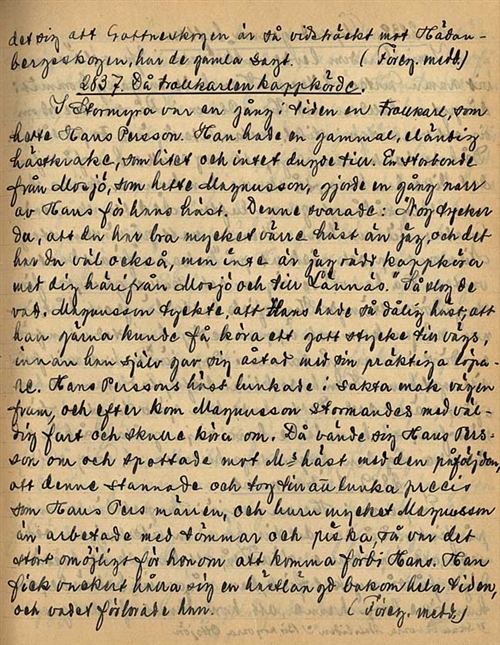 det sig att Gottneskogen är så vidsträckt mot Hädan-
bergsskogen, har de gamla sagt. (Föreg. medd.)
2837. Då trollkarlen kappkörde.
I Stormyra var en gång i tiden en trollkarl, som
hette Hans Persson. Han hade en gammal, eländig
hästkrake, som litet och intet dugde till. En storbonde
från Mosjö, som hette Magnusson, gjorde en gång narr
av Hans för hans häst. Denne svarade: "Nog tycker
du, att du har bra mycket värre häst än jag, och det
har du väl också, men inte är jag rädd kappköra
med dig härifrån Mosjö och till Lännäs." Så slog de
vad. Magnusson tyckte, att Hans hade så dålig häst, att
han gärna kunde få köra ett gott stycke till vägs,
innan han själv gav sig åstad med sin präktiga löpa-
re. Hans Perssons häst lunkade i sakta mak vägen
fram, och efter kom Magnusson stormandes med väl-
dig fart och skulle köra om. Då vände sig Hans Pers-
son om och spottade mot M:s häst med den påföljden,
att denne stannade och tog till att lunka precis
som Hans Pers märren, och huru mycket Magnusson
än arbetade med tömmar och piska, så var det
stört omöjligt för honom att komma förbi Hans. Han
fick vackert hålla sig en hästlängd bakom hela tiden,
och vadet förlorade han. (Föreg. medd.)